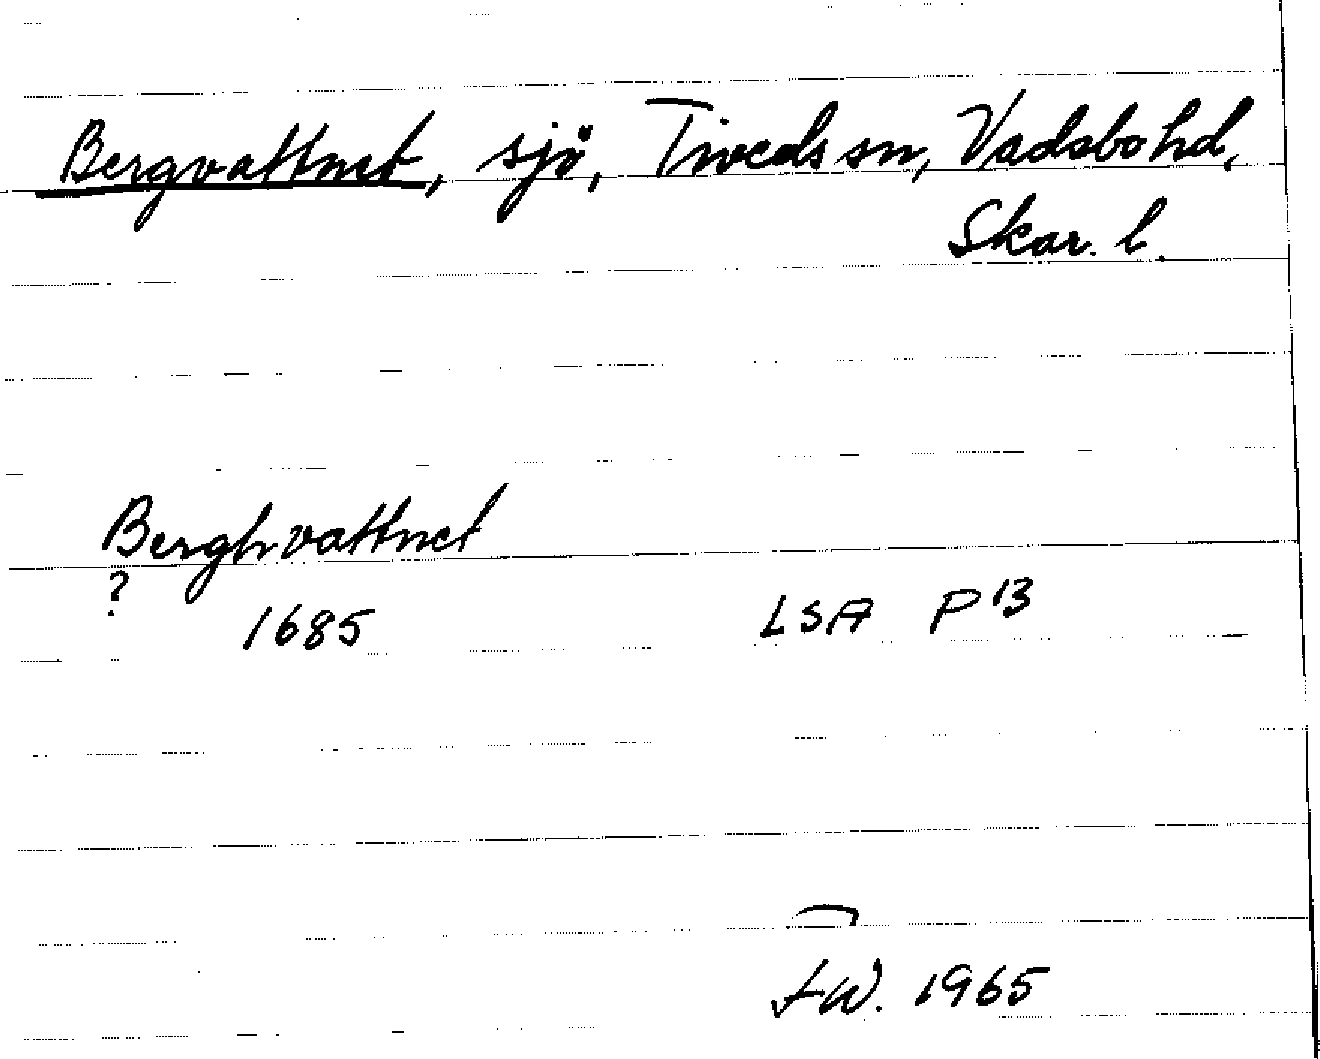 Bergvattnet, sjö, Tiveds sn, Vadsbo hd,
Skar. l.
Berghvattnet
?
1685 LSA P 13
F.W. 1965